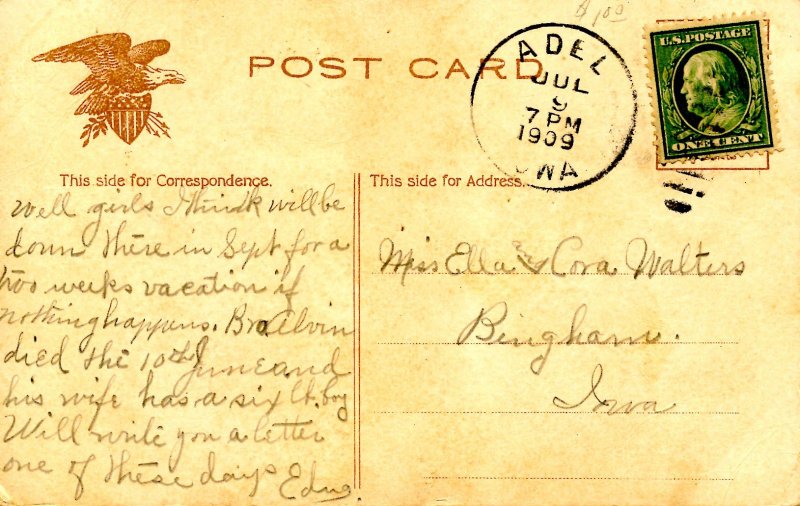 $1.00
POST CARD
ADEL
JUL
9
7 PM
1909
IOWA
U.S. POSTAGE
ONE CENT
This side for Correspondence.
Well girls I think will be
down there in Sept for a
two weeks vacation if
nothing happens. Bro Alvin
died the 10th June and
his wife has a six lb. boy
Will write you a letter
one of these days
Edna.
This side for Address.
Miss Ella & Cora Walters
Bingham.
Iowa